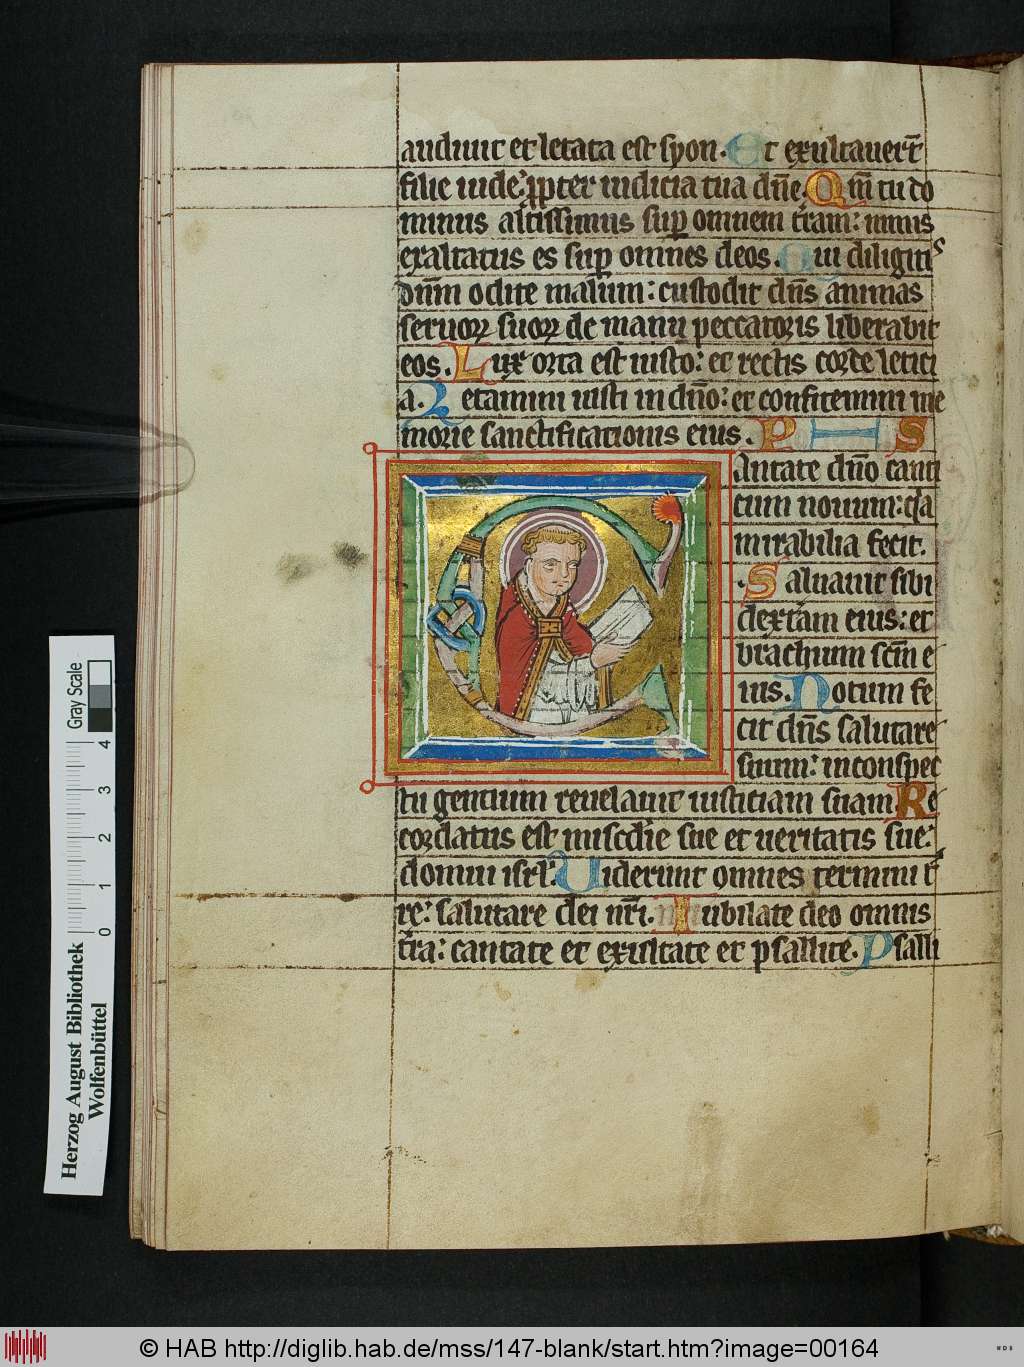 audiuit et letata est syon. Et exultauerT̄
filie iude: ꝓpter iudicia tua dn̄e. Qm̄ tu do
minus altissimus suꝑ omnem t̄ram: nimis
exaltatus es suꝑ omnes deos. Qui diligitis
dn̄m odite malum: custodit dn̄s animas
seruoꝝ suoꝝ de manu peccatoris liberabit
eos. Lux orta est iusto: et rectis corde letici
a. Letamini iusti in dn̄o: et confitemini me
morie sanctificationis eius. P S
Antate dn̄o canti
cum nouum: q̄a
mirabilia fecit.
Saluauit sibi
dextram eius: et
brachium scm̄ e
ius. Notum fe
cit dn̄s salutare
suum: in conspec
tu gentium reuelauit iusticiam suam Re
cordatus est misc̄die sue et ueritatis sue:
domui isrl̄. Uiderunt omnes termini t̄
re: salutare dei nr̄i. Iubilate deo omnis
t̄ra: cantate et exultate et psallite. Psalli
Gray Scale
0 1 2 3 4
Herzog August Bibliothek
Wolfenbüttel
© HAB http://diglib.hab.de/mss/147-blank/start.htm?image=00164